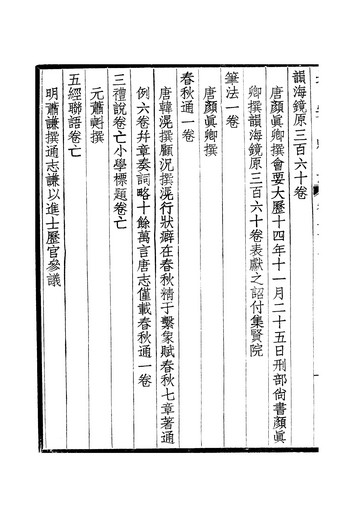 韻海鏡原三百六十卷
唐顏眞卿撰會要大曆十四年十一月二十五日刑部尙書顏眞
卿撰韻海鏡原三百六十卷表獻之詔付集賢院
筆法一卷
唐顏眞卿撰
春秋通一卷
唐韓滉撰顧況撰滉行狀癖在春秋精于繫象賦春秋七章著通
例六卷幷章奏詞略十餘萬言唐志僅載春秋通一卷
三禮說卷亡小學標題卷亡
元蕭㪺撰
五經聯語卷亡
明蕭謙撰通志謙以進士歷官參議